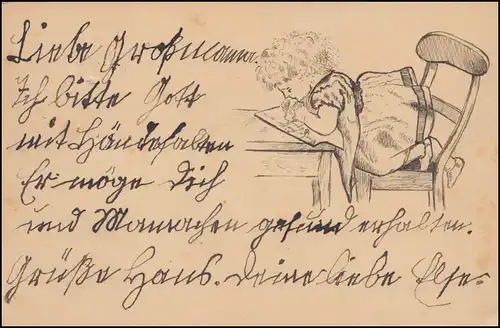 Liebe Großmama.
Ich bitte Gott
mit Händefalten
Er möge Dich
und Mamachen gesund erhalten.
Grüße Hans. Deine liebe Ilse.